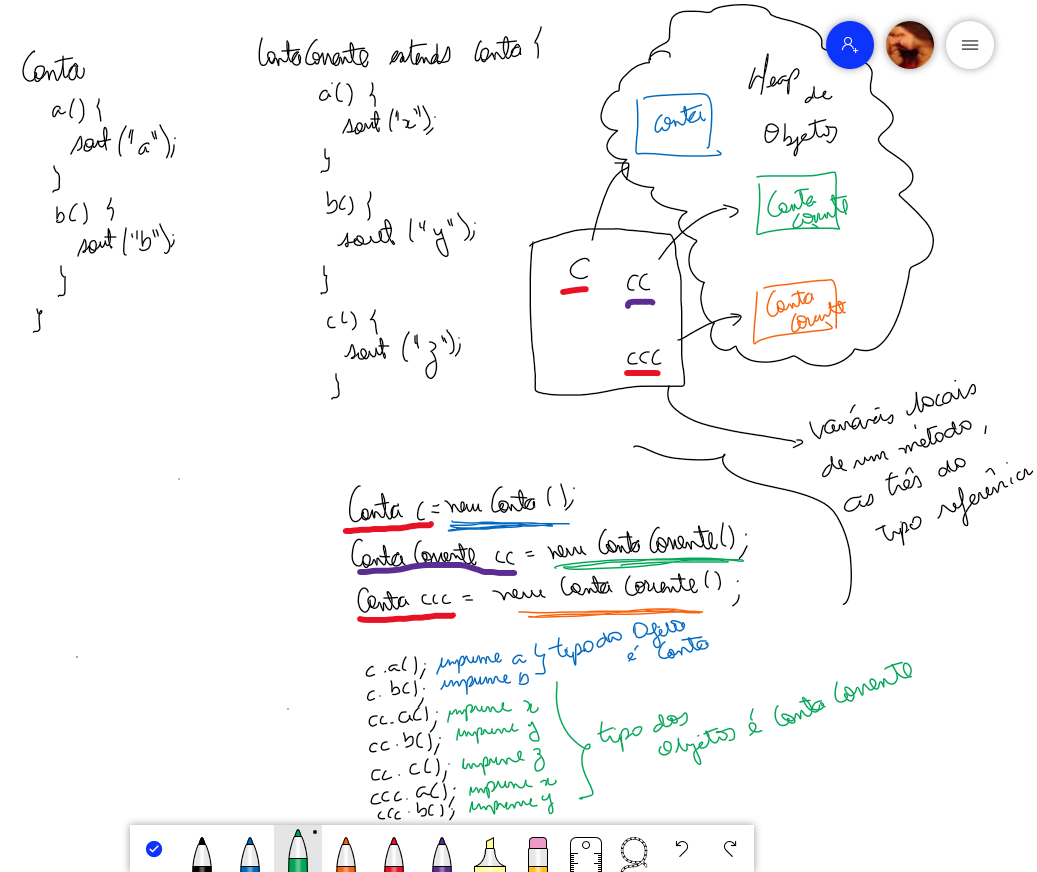 Conta
a() {
sout ("a");
}
b() {
sout ("b");
}
}
ContaCorrente extends Conta {
a() {
sout ("x");
}
b() {
sout ("y");
}
c() {
sout ("z");
}
Heap
de
Objetos
Conta
Conta
Corrente
Conta
Corrente
C
CC
CCC
Variáveis locais
de um método,
as três do
tipo referência
Conta C = new Conta ();
Conta Corrente cc = new Conta Corrente();
Conta ccc = new Conta Corrente();
c.a(); imprime a } tipo do Objeto
é Conta
c.b(); imprime b
cc.a(); imprime x
cc.b(); imprime y
cc.c(); imprime z
ccc.a(); imprime x
ccc.b(); imprime y
tipo dos
Objetos é Conta Corrente